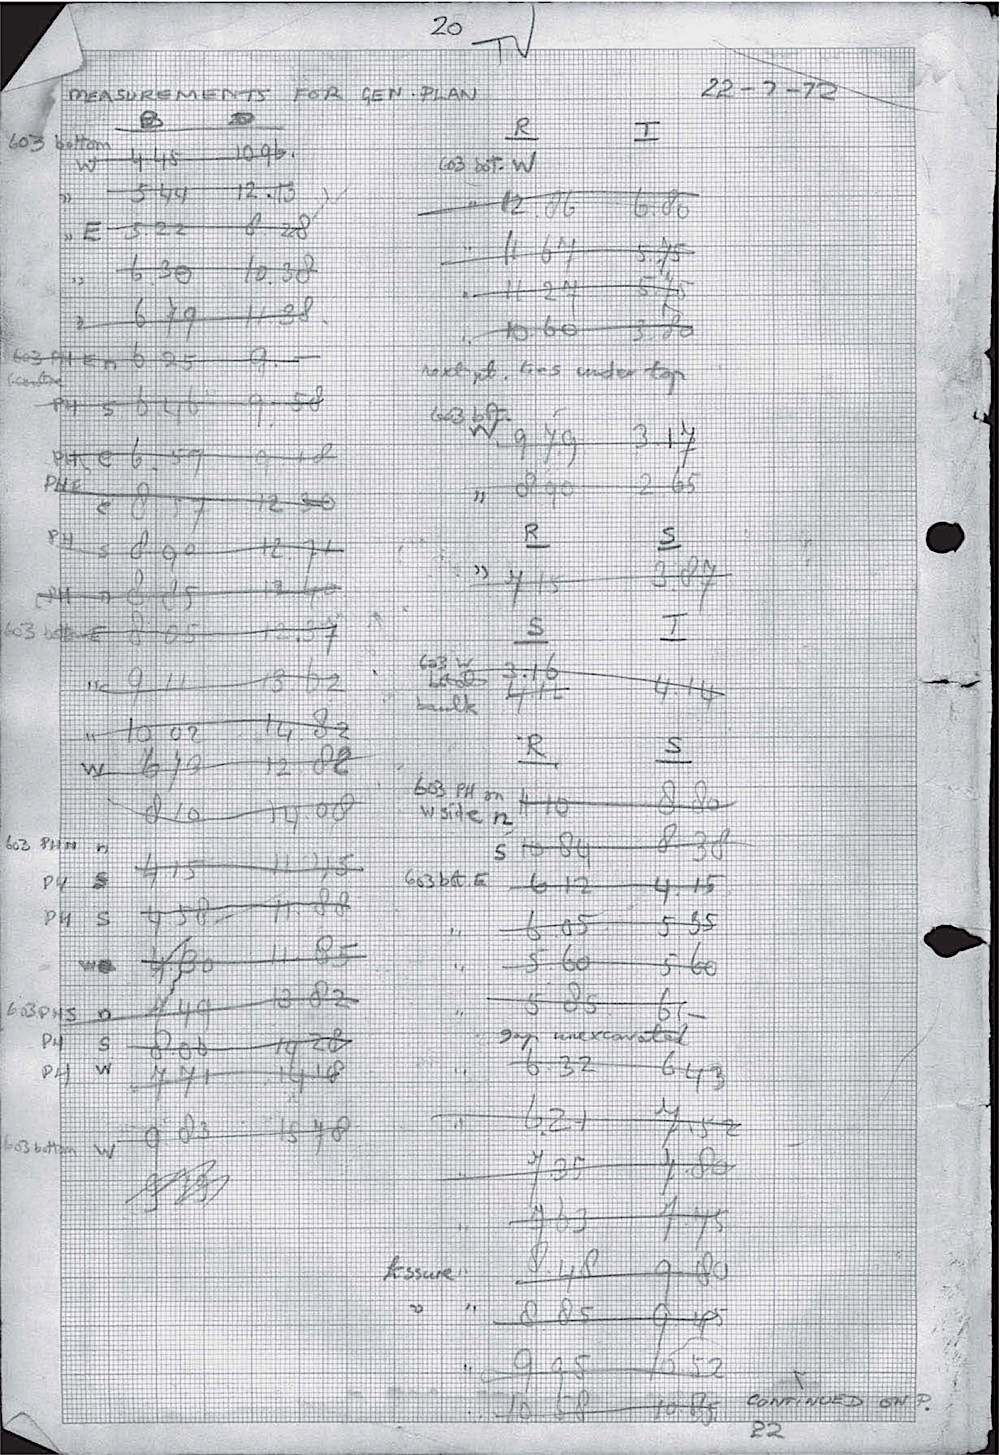 20
TV
MEASUREMENTS FOR GEN. PLAN
22-7-72
B D
603 bottom
W 4 45 10 96.
" 5 44 12.13
" E 5 22 8 28
" 6.30 10.38
" 6 79 11.38.
603 PH E n 6 25 9.-
PH S 6 46 9.58
PH E 6.59 9 18
PHE
8.57 12 30
PH S 8 90 12.71
PH n 8 85 12 40
603 bottom E 8 05 12.37
" 9 11 13 62
" 10 02 14 82
W 6 79 12 82
8 10 14 08
603 PHN n
PH S 4 15 11.45
PH S 4 58 11.88
11.85
603 PHS n 7 49 13 82
PH S 8.06 14 28
PH W 7 71 14 18
603 bottom W 9 83 15 78
R I
603 bot. W
" 12.86 6.80
" 11 67 5.75
" 11 27
" 10.60 3.80
next pt. lies under top
603 bot.
W 9 79 3.17
" 8 90 2 65
R S
" 7 15 3.87
S I
603 W 3.16
4.14
baulk
R S
603 PH on
W side n 11 10 8 80
S 10 84 8.38
603 bot. E 6 12 4.15
" 6 05 5 35
" 5 60 5 60
" 5 85 6.-
gap unexcavated
" 6.32 6 43
" 6.21 7.52
" 7 35 7.80
" 7 63 7.45
fissure " 8.48 9 80
" " 8 85 9 45
" 9 95 10 52
10 58 10 85
CONTINUED ON P.
22